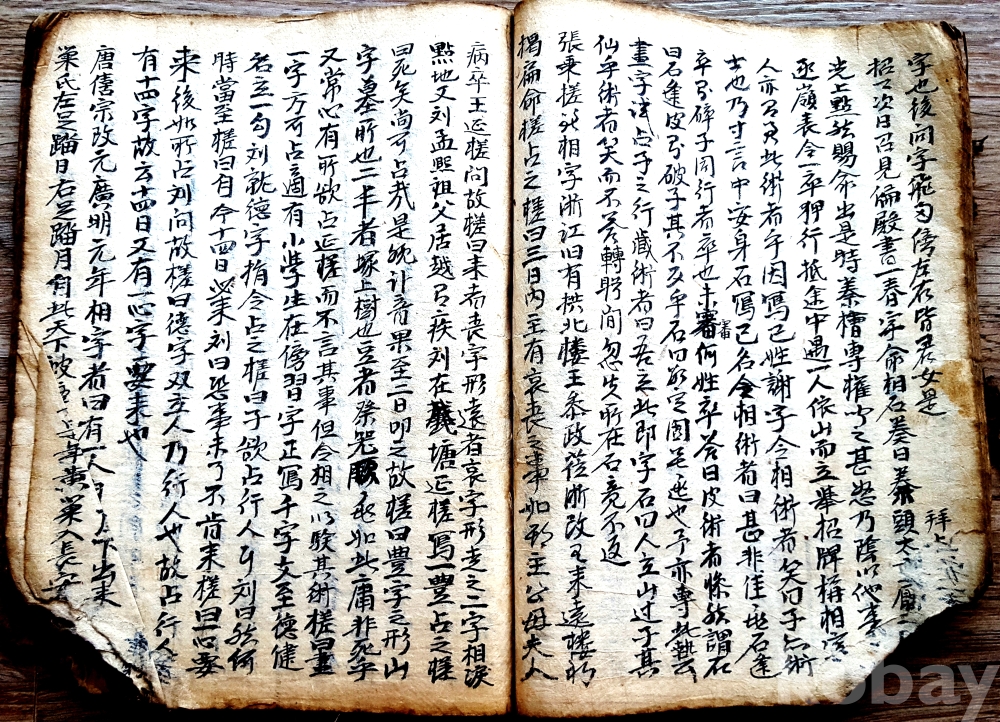 字也後問字飛勾傍左右皆君女是
招次日召見偏殿書一春字命相石奏曰秦頭太
光上黙然賜命出是時秦檜專權聞之甚怒乃陰以他事
逐嶺表令一卒押行抵途中遇一人依山而立舉招牌稱相字
人亦有此術者乎因寫己姓謝字令相術者笑曰子亦術
士也乃寸言中安身石寫己名令相術者曰甚非佳兆石逢
卒則碎子同行者卒也未審何姓卒答曰皮術者倏然謂石
曰石逢皮則破子其不反乎石曰數定國難逃也予亦專此藝
畫字試占予之行藏術者曰吾立此即字石曰人立山过子其
仙乎術者笑而不答轉盼间忽失所在石竟不返
張乗槎所相字浙江旧有拱北楼王參政莅浙改为来遠楼初
揭匾命槎占之槎曰三日内主有哀喪之事如期王公母夫人
病卒王延槎問故槎曰来者喪字形遠者哀字形走之二字相淚
點地又刘孟熙祖父居越有疾刘在義塘延槎寫一豊占之槎
曰死矣尚可占哉是晚訃音果至二日叩之故槎曰豊字之形山
字墓所也二丰者塚上樹也豆者祭器 如此庸非死乎
又常心有所欲占延槎而不言其事但令相之以驗其術槎曰書
一字方可占適有小學生在傍習字正寫千字文至德健
名立一勾刘就德字揹令占之槎曰子欲占行人乎刘曰然何
時當至槎曰自今十四日必来刘曰恐事未了不肯来槎曰一心要
来後如所占刘問故槎曰德字双立人乃行人也故占行人
有十四字故云十四日又有一心字要来也
唐僖宗改元廣明元年相字者曰有一人 下出来
巣氏左足踏日右足踏月自此天下被 黄巢入長安
拜上